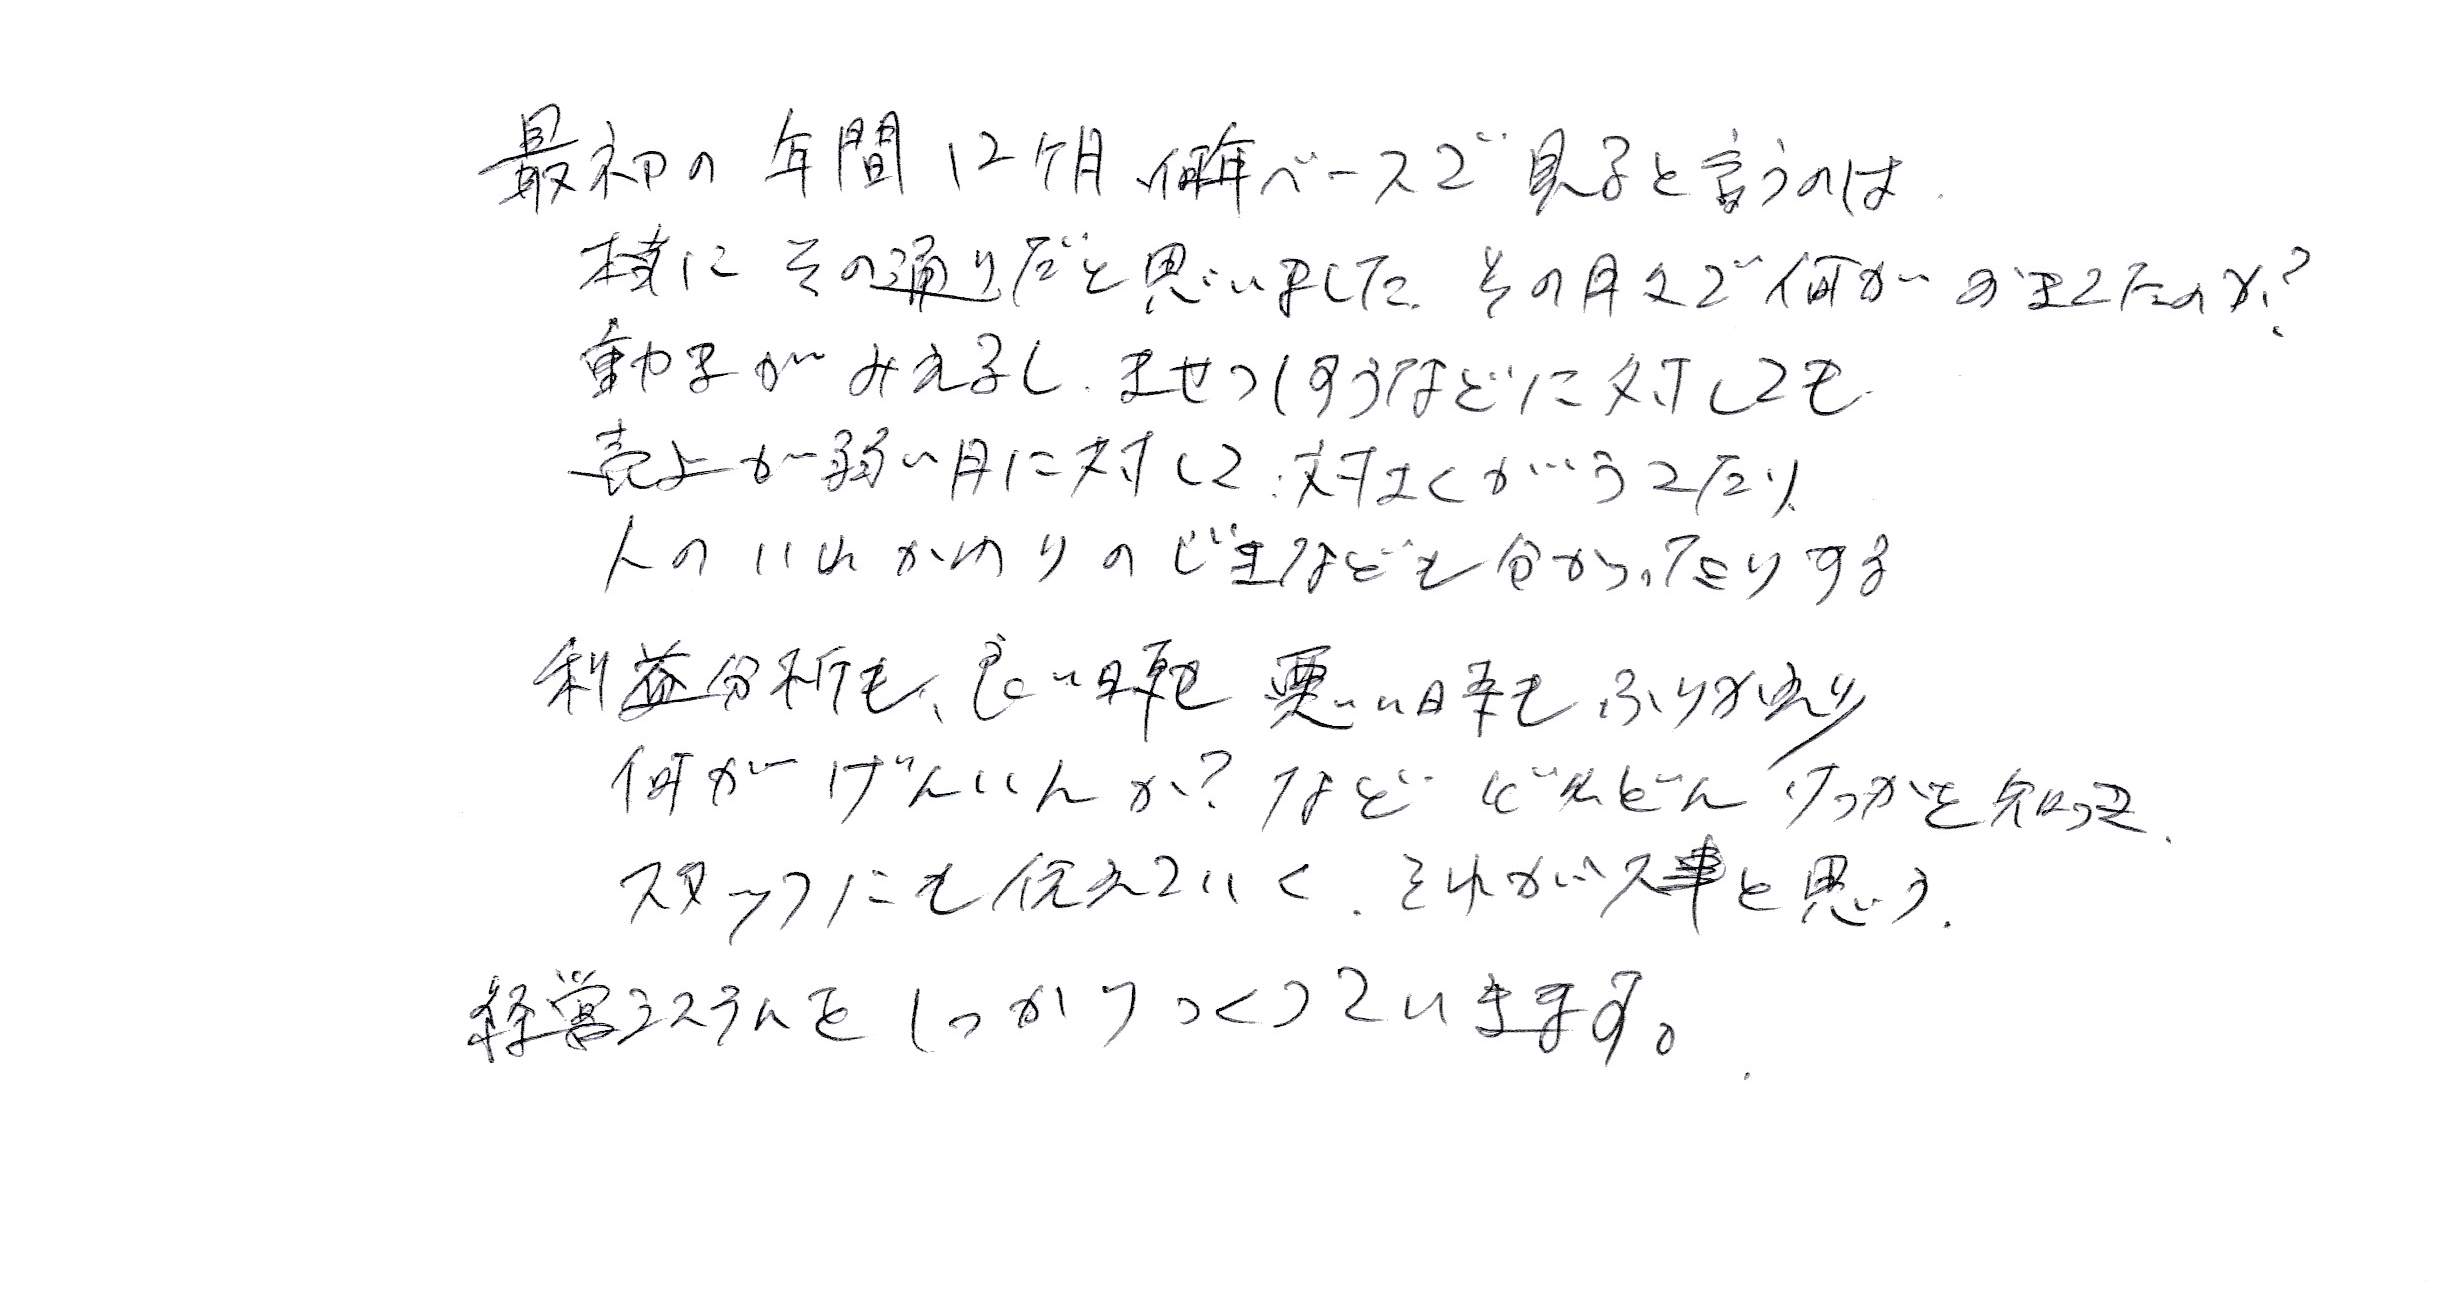 最初の年間12ケ月、何年ベースで見ると言うのは.
様にその通りだと思いました. その月々で何がおきてたのか?
動きがみえるし. ませつしょうなどに対しても
売上が弱い月に対して. 対さくがうてたり.
人のいれかわりのじきなども分かったりする
利益分析も、良い時も悪い時もふりかえり
何がげんいんか? など どんどんけっかを知って.
スタッフにも伝えていく. それが大事と思う.
経営システムをしっかりつくっていきます。